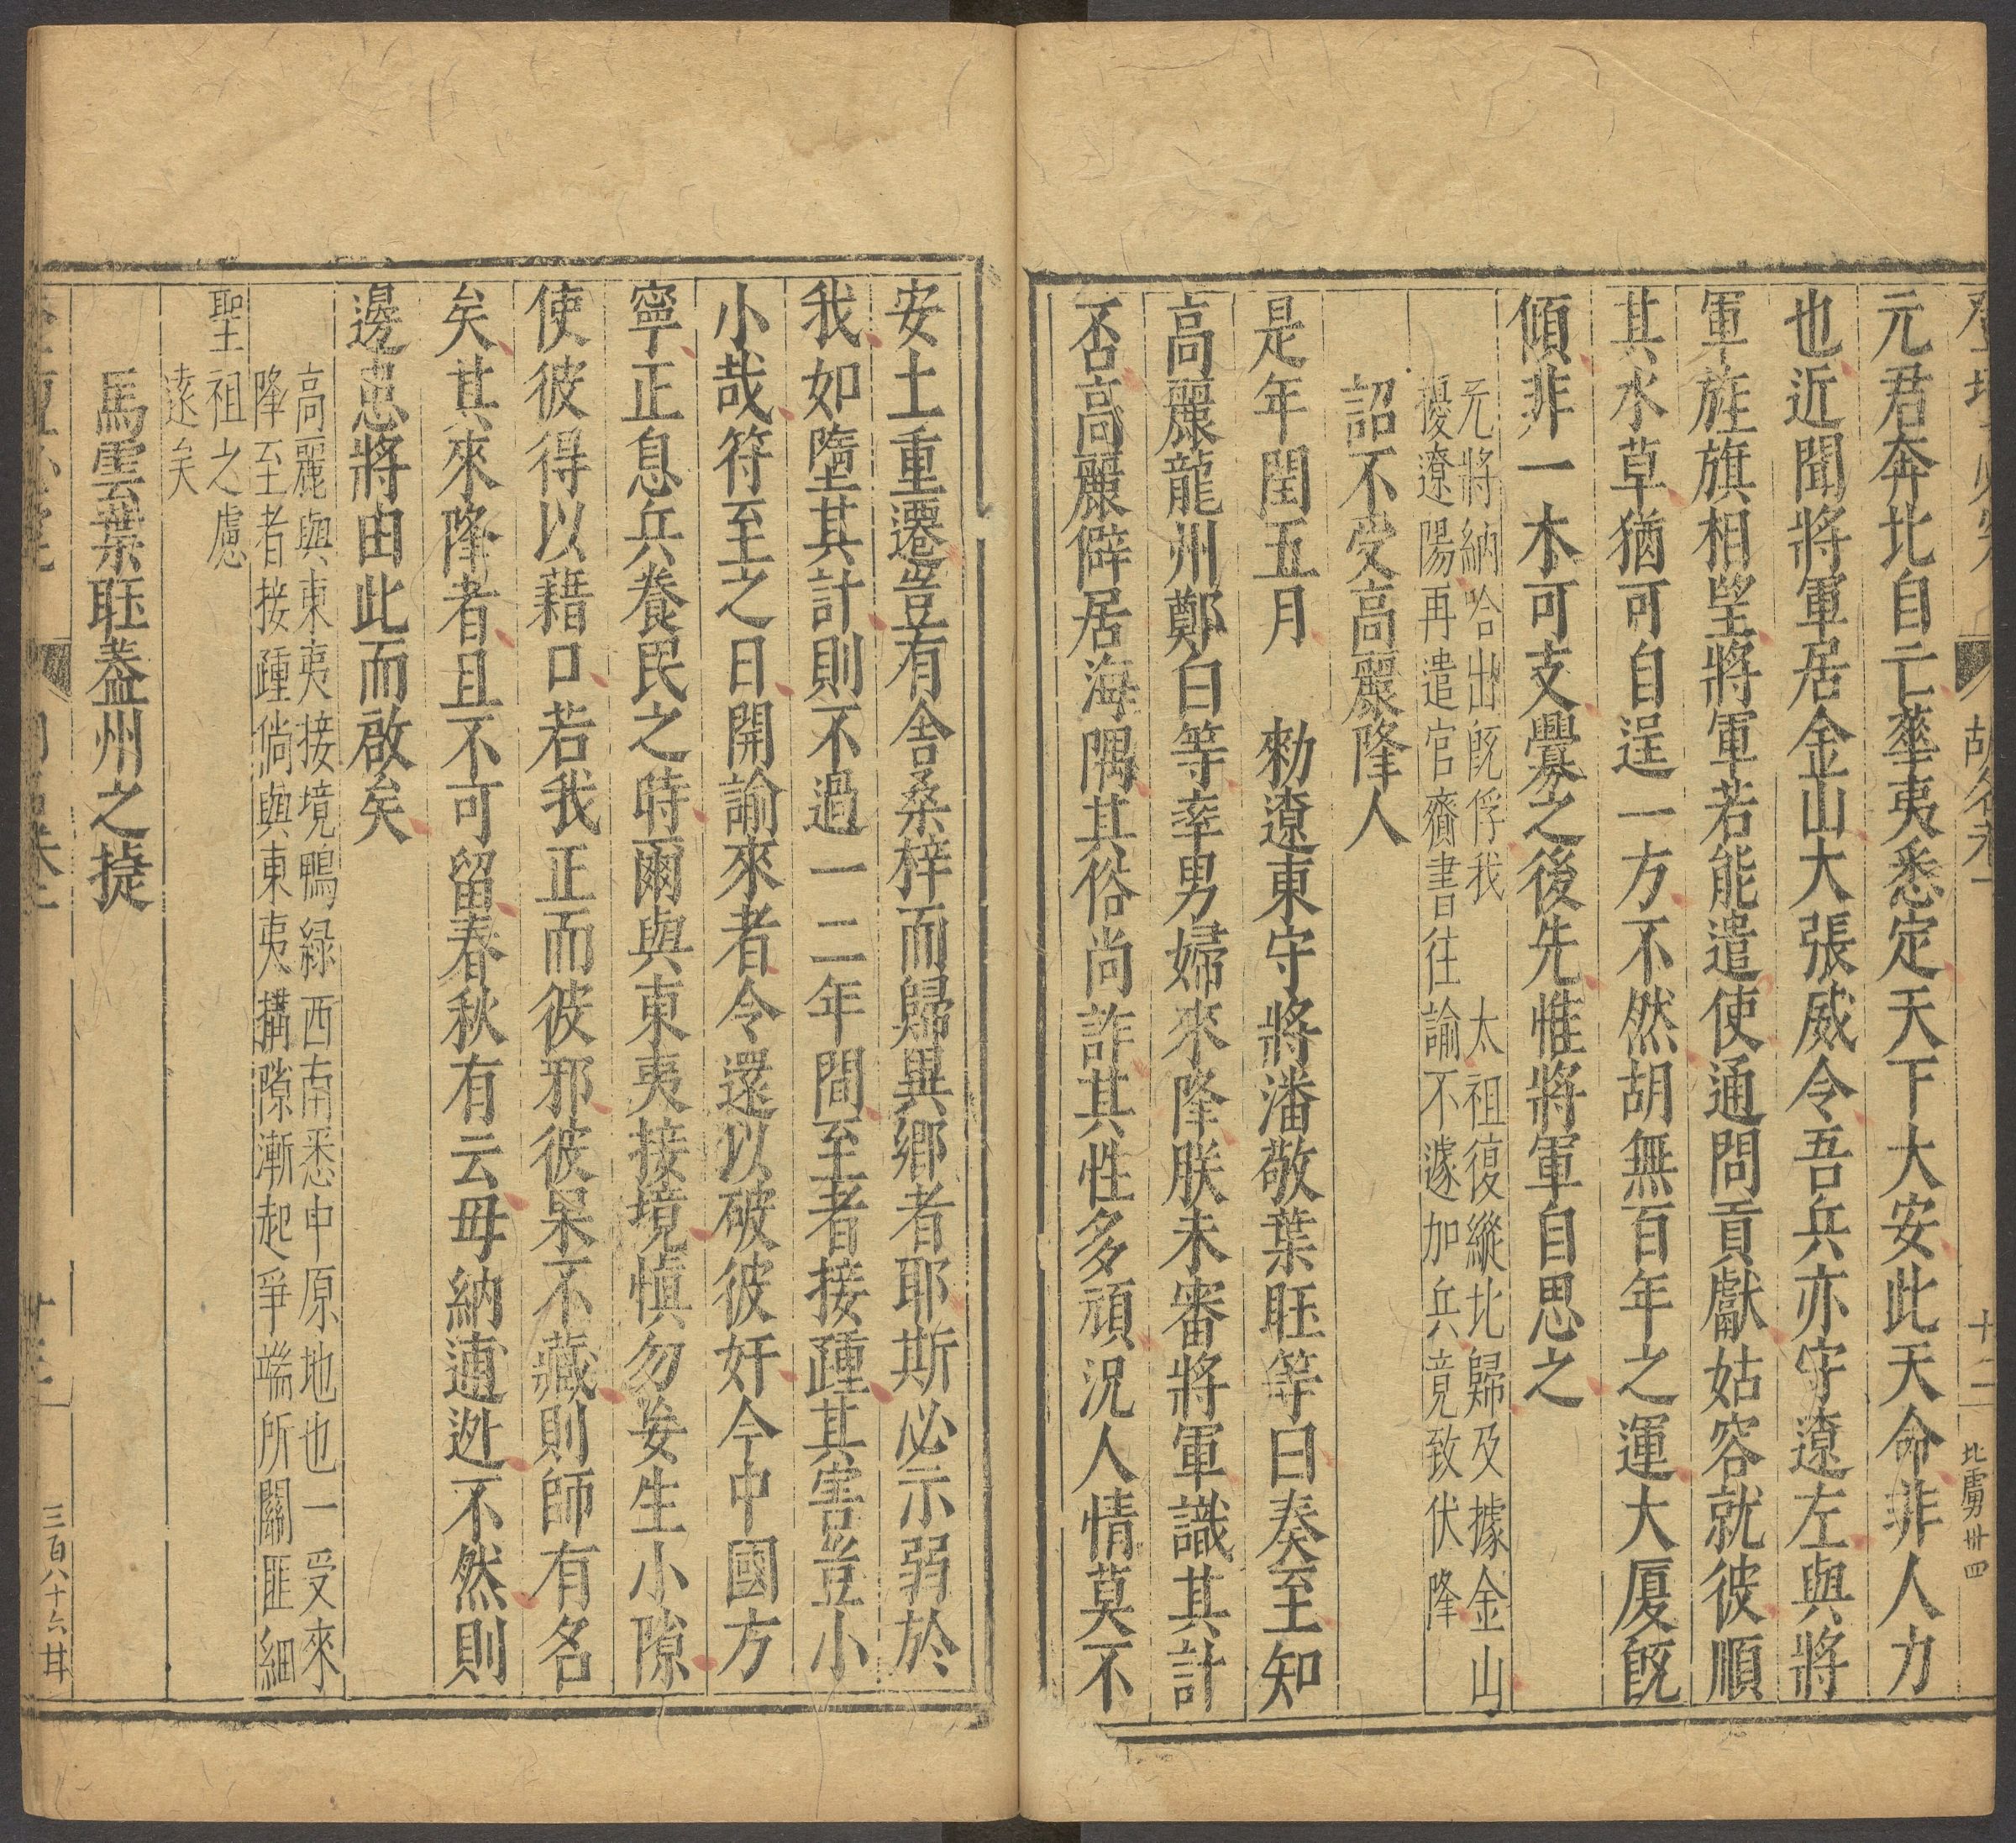 胡名考一
十二
北虜卅四
元君奔北自亡華夷悉定天下大安此天命非人力
也近聞將軍居金山大張威令吾兵亦守遼左與將
軍旌旗相望將軍若能遣使通問貢獻姑容就彼順
其水草猶可自逞一方不然胡無百年之運大厦旣
傾非一木可支釁之後先惟將軍自思之
元將納哈出旣俘我　太祖復縱北歸及據金山
擾遼陽再遣官齎書往諭不遽加兵竟致伏降
詔不受高麗降人
是年閏五月　勑遼東守將潘敬葉旺等曰奏至知
高麗龍州鄭白等率男婦來降朕未審將軍識其計
否高麗僻居海隅其俗尚詐其性多頑況人情莫不
安土重遷豈有舍桑梓而歸異鄉者耶斯必示弱於
我如墮其計則不過一二年間至者接踵其害豈小
小哉符至之日開諭來者令還以破彼奸今中國方
寧正息兵養民之時爾與東夷接境愼勿妄生小隙
使彼得以藉口若我正而彼邪彼杲不藏則師有名
矣其來降者且不可留春秋有云毋納逋逃不然則
邊患將由此而啟矣
高麗與東夷接境鴨緑西南悉中原地也一受來
降至者接踵倘與東夷搆隙漸起爭端所關匪細
聖祖之慮
遠矣
馬雲葉旺蓋州之捷
三百八十六